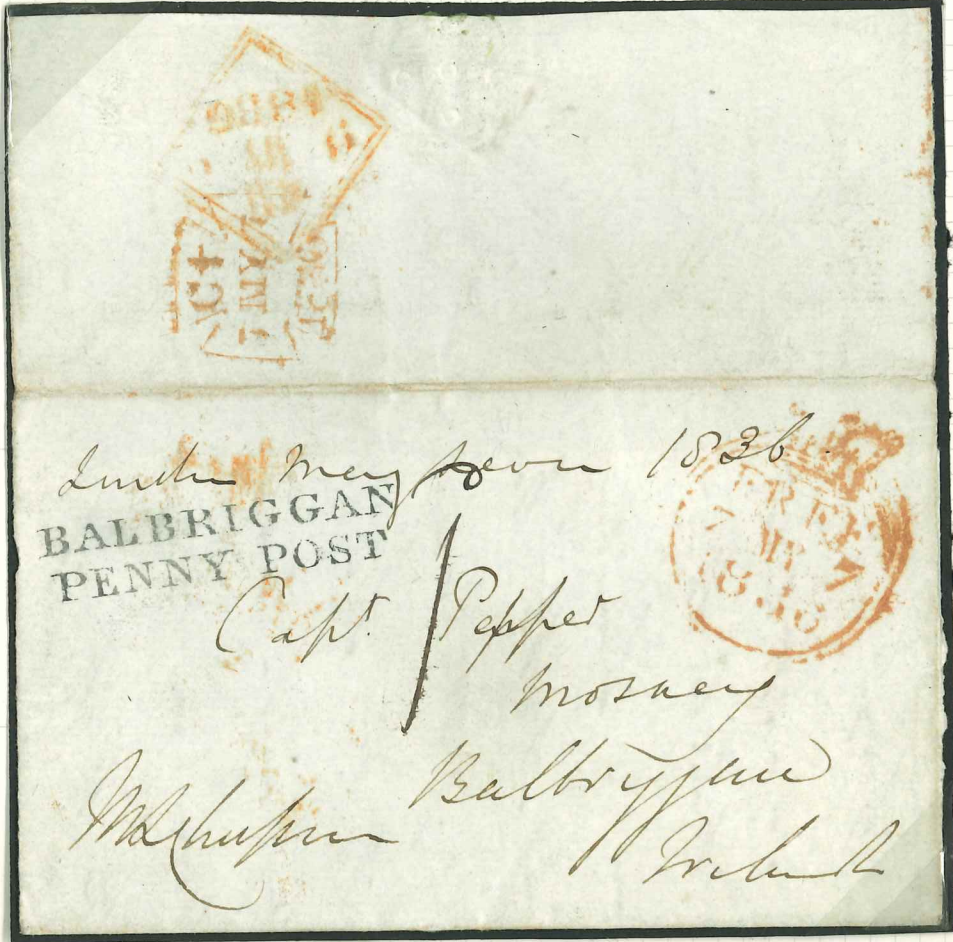 1836
MY
London May seven 1836
BALBRIGGAN
PENNY POST
FREE
7 MY 7
1836
Capt. 1 Pepper
Mosney
Balbriggan
Ireland